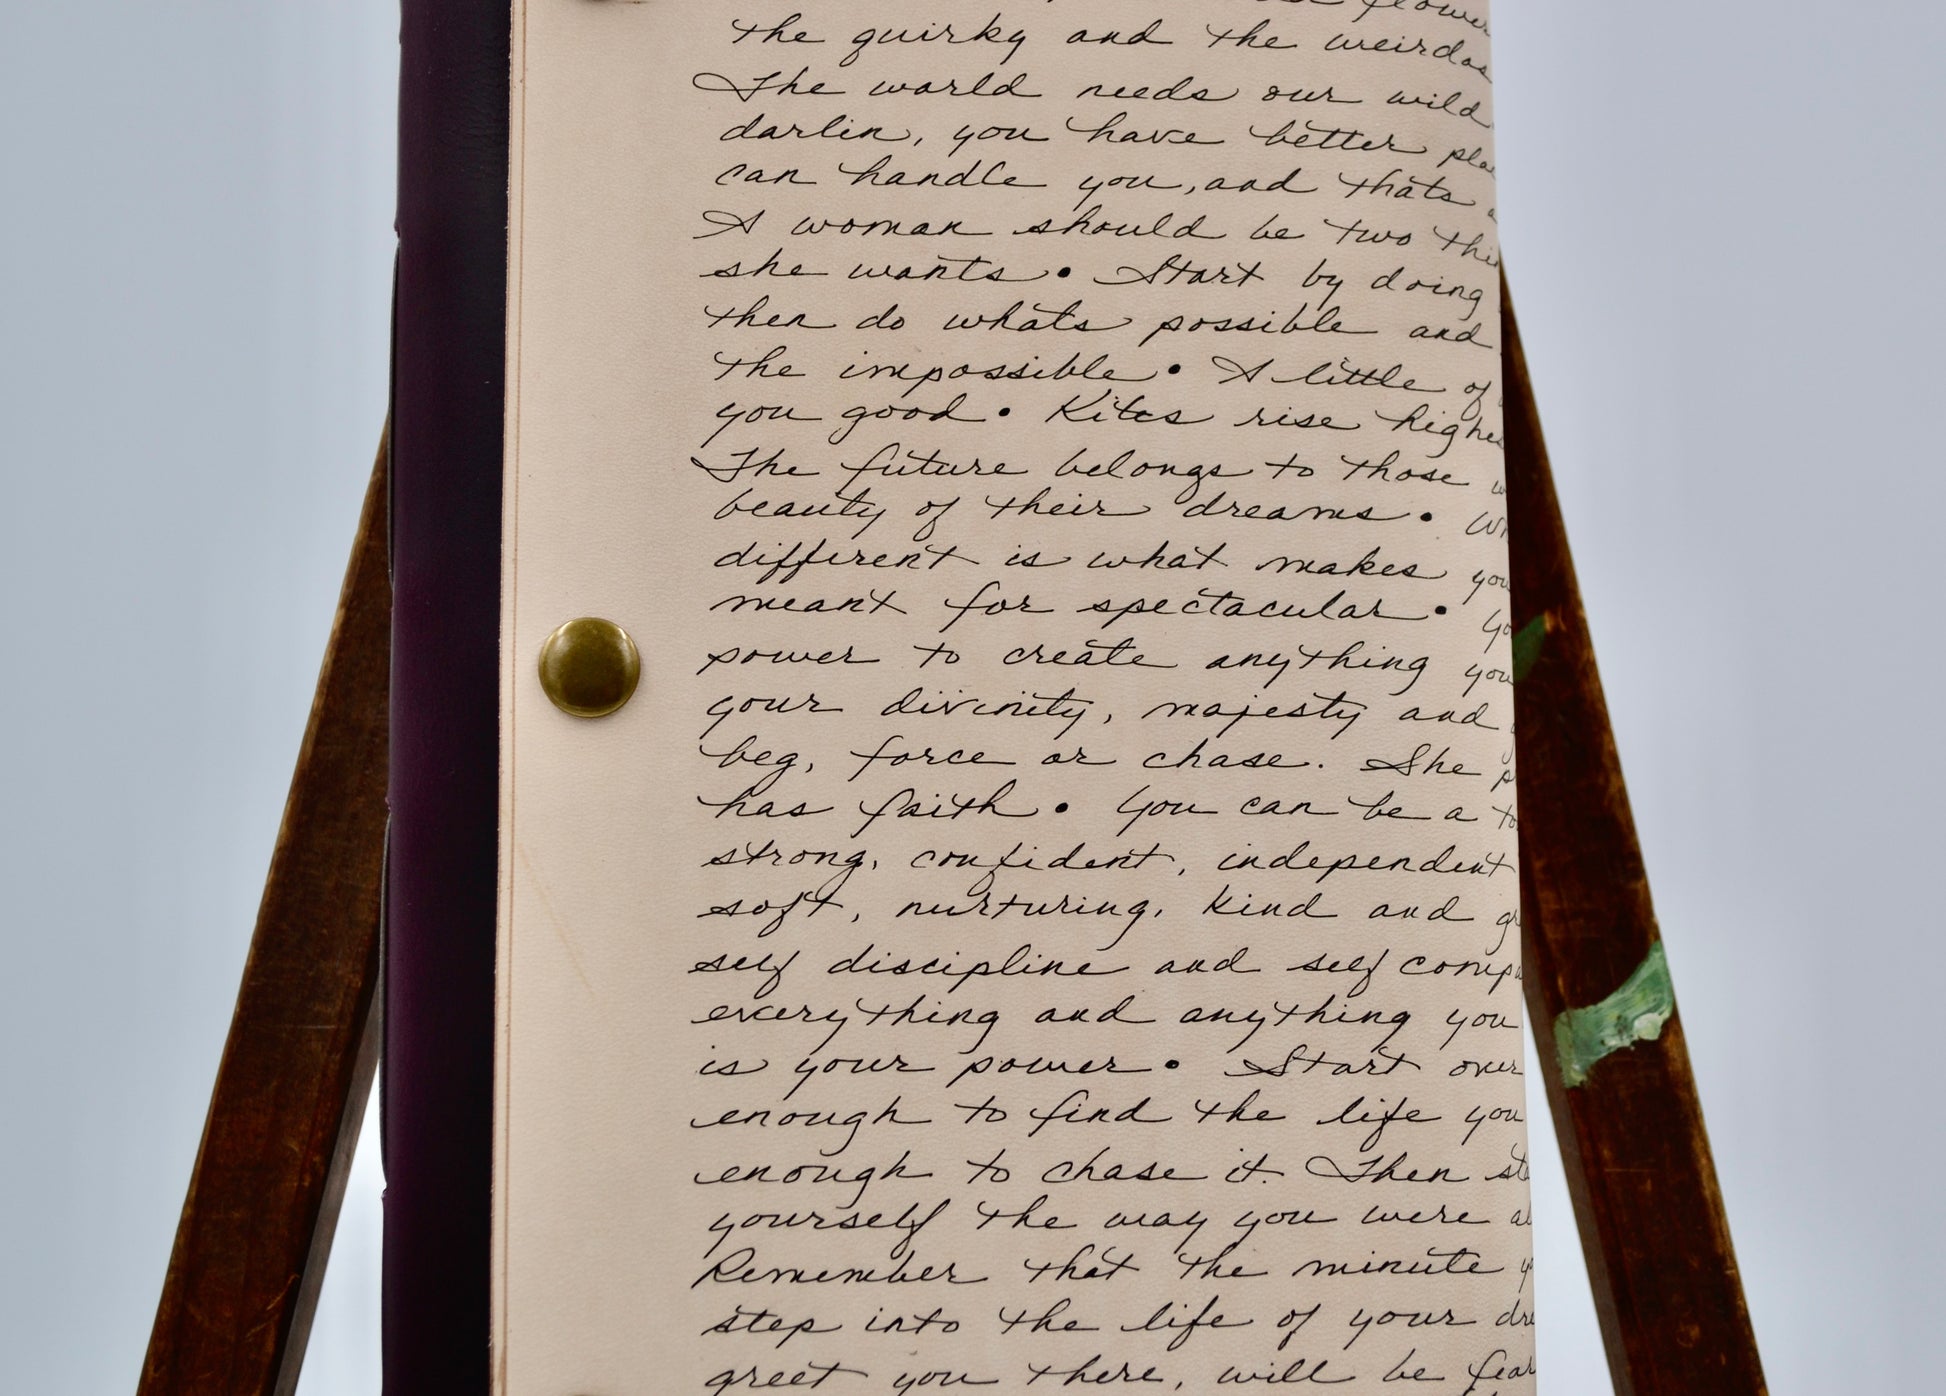 flower
the quirky and the weirdos
The world needs our wild
darlin, you have better
can handle you, and thats
A woman should be two
she wants • Start by doing
then do whats possible and
the impossible • A little of
you good • Kites rise highes
The future belongs to those
beauty of their dreams •
different is what makes you
meant for spectacular •
power to create anything you
your divinity, majesty and
beg, force or chase. She
has faith • You can be a
strong, confident, independent
soft, nurturing, kind and
self discipline and self comp
everything and anything you
is your power • Start over
enough to find the life you
enough to chase it. Then
yourself the way you were
Remember that the minute
step into the life of your
greet you there, will be fear